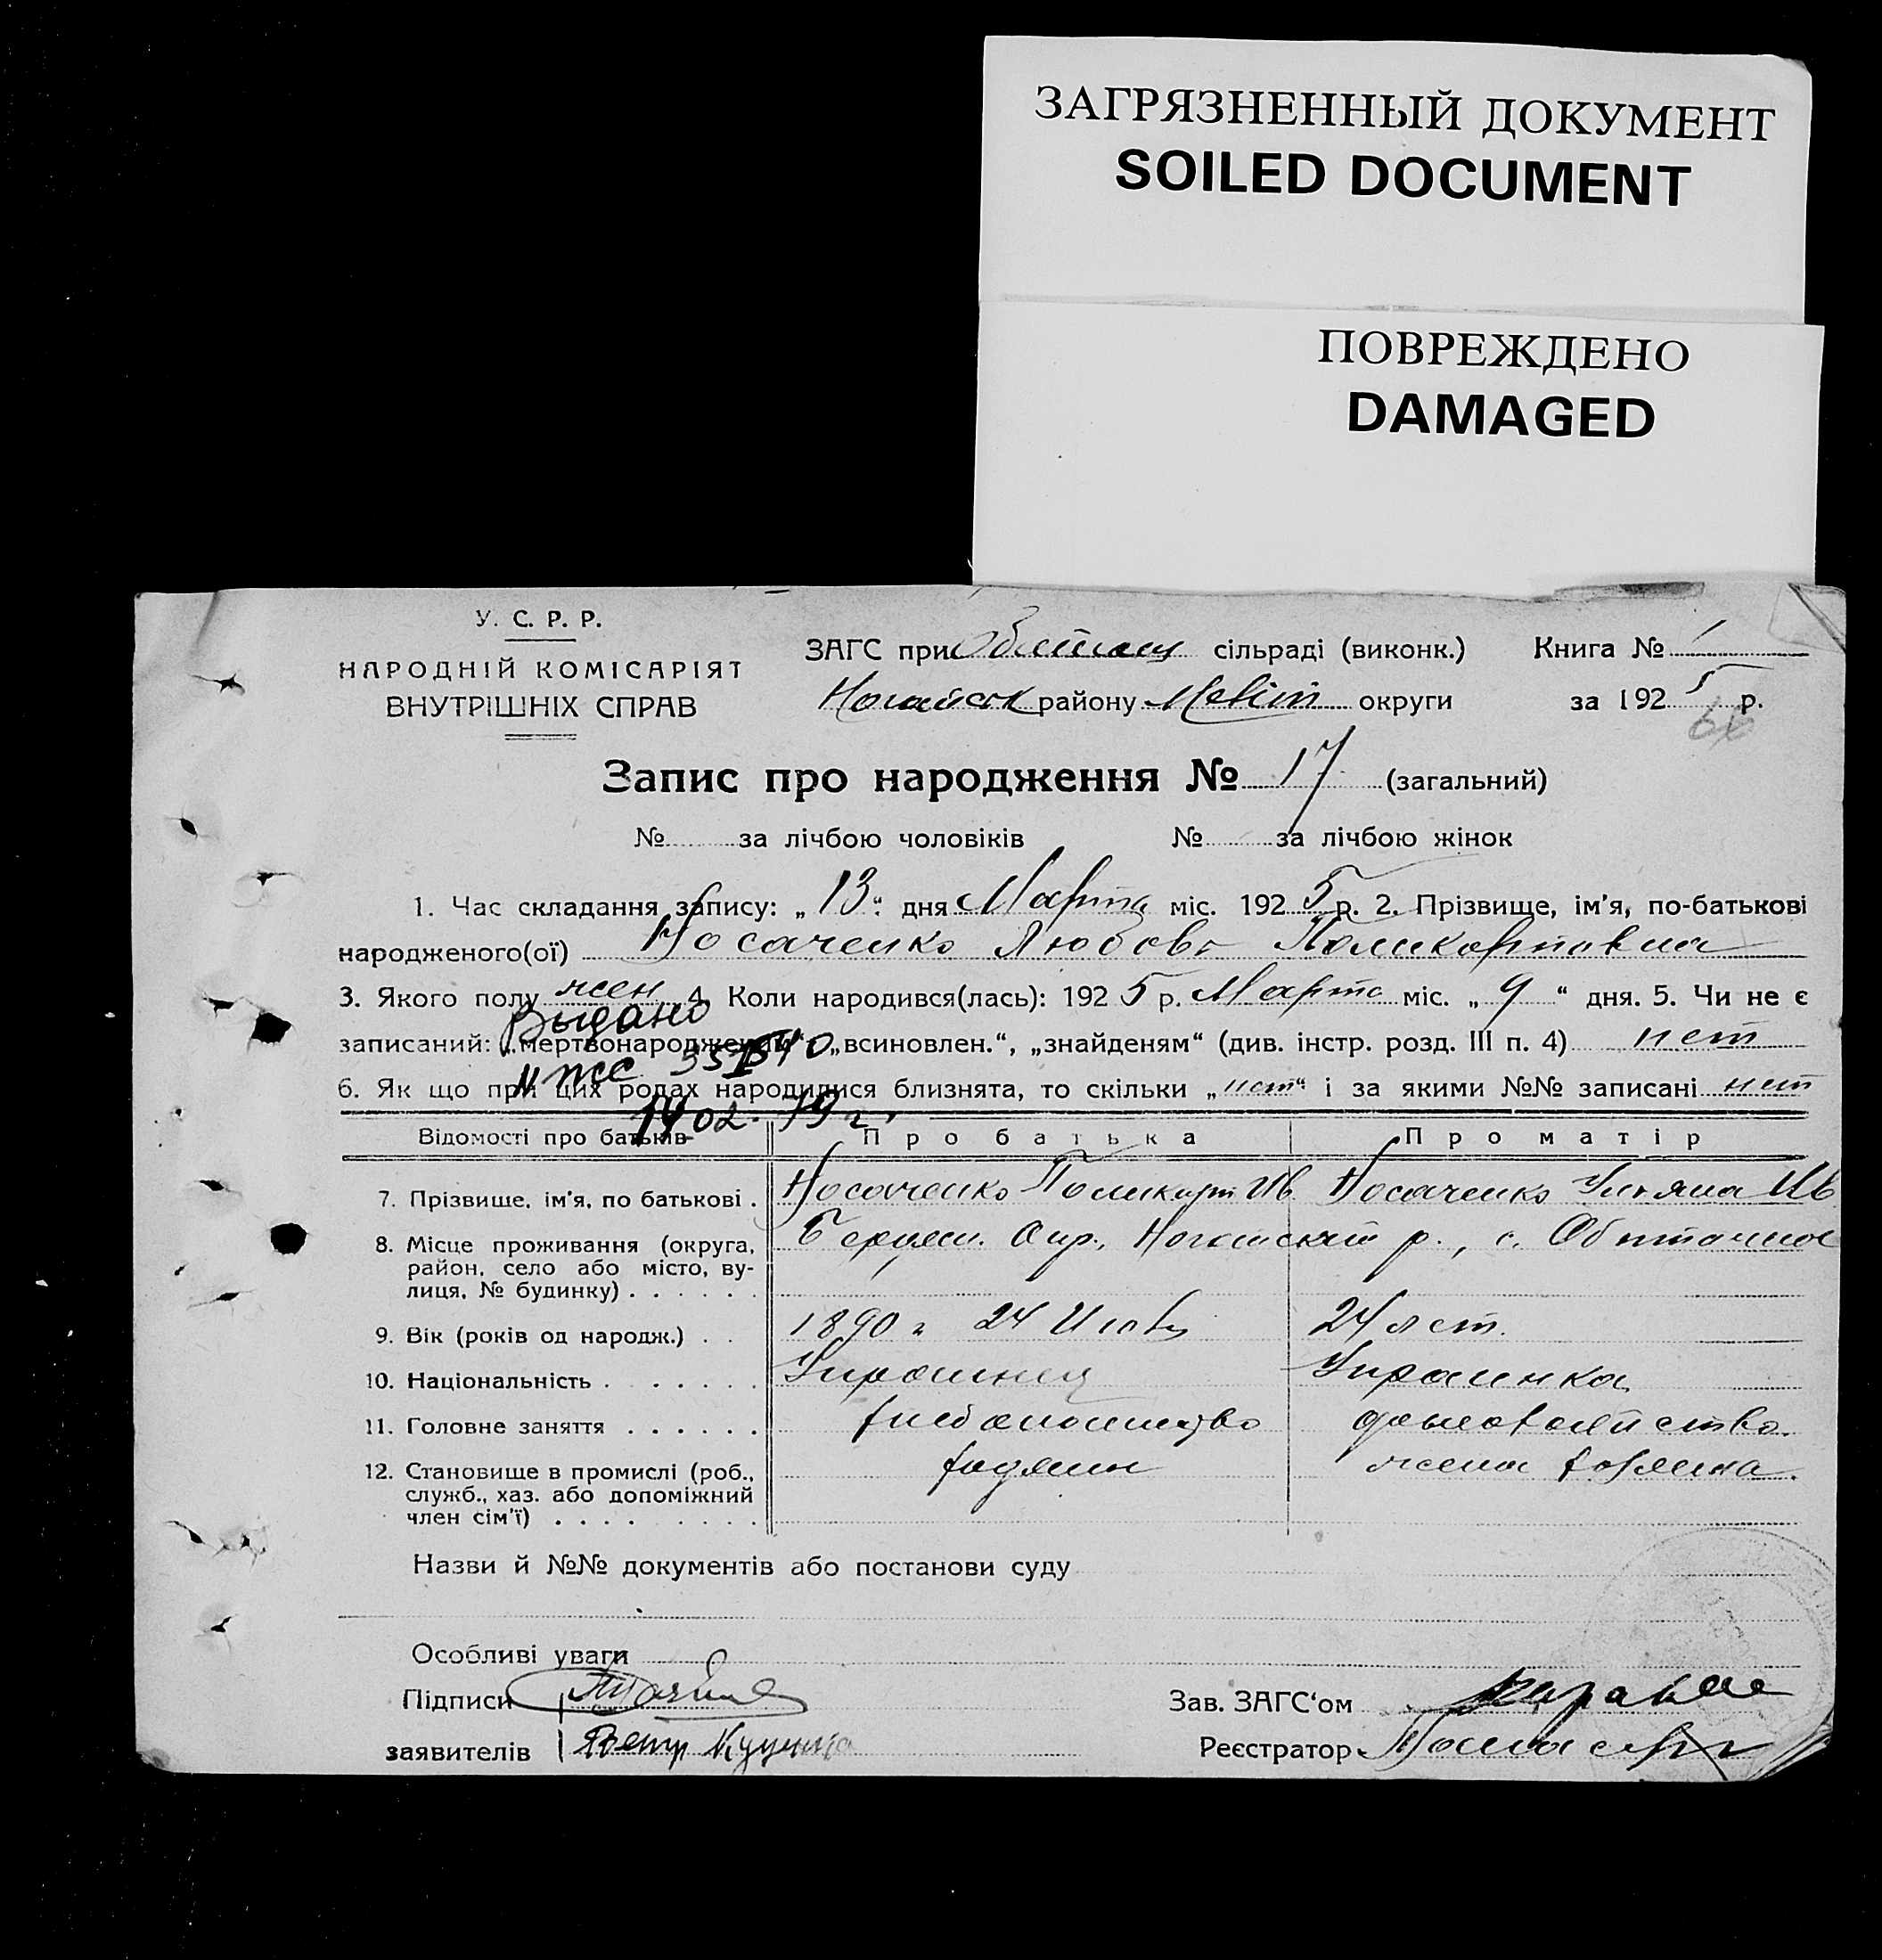 ЗАГРЯЗНЕННЫЙ ДОКУМЕНТ
SOILED DOCUMENT
ПОВРЕЖДЕНО
DAMAGED
У. С. Р. Р.
НАРОДНІЙ КОМІСАРІЯТ
ВНУТРІШНІХ СПРАВ
ЗАГС при сільраді (виконк.) Книга № 1
Ногайск району Меліт округи за 1925 р.
66
Запис про народження № 17 (загальний)
№ за лічбою чоловіків № за лічбою жінок
1. Час складання запису: „13“ дня Марта міс. 1925 р. 2. Прізвище, ім'я, по-батькові
народженого(ої) Носаченко Любовь Поликарповна
3. Якого полу жен 4. Коли народився(лась): 1925 р. Марта міс. „9“ дня. 5. Чи не є
Выдано
записаний: „мертвонароджений“, „всиновлен.“, „знайденям“ (див. інстр. розд. III п. 4) нет
6. Як що при цих родах народилися близнята, то скільки „нет“ і за якими №№ записані нет
14 02. 79 г.
Відомості про батьків Про батька Про матір
7. Прізвище, ім'я, по батькові . Носаченко Поликарп Ив. Носаченко Ульяна Ив
8. Місце проживання (округа, район, село або місто, вулиця, № будинку) . . . . . . Бердян. Окр., Ногайский р., с. Обиточное
9. Вік (років од народж.) . . 1890 г 24 24 лет.
10. Національність . . . . . . Украинец Украинка
11. Головне заняття . . . . . . хлебопашество домохозяйство.
12. Становище в промислі (роб., служб., хаз. або допоміжний член сім'ї) . . . . . . . . . хозяин жена хозяина.
Назви й №№ документів або постанови суду
Особливі уваги
Підписи
заявителів Петр
Зав. ЗАГС'ом
Реєстратор